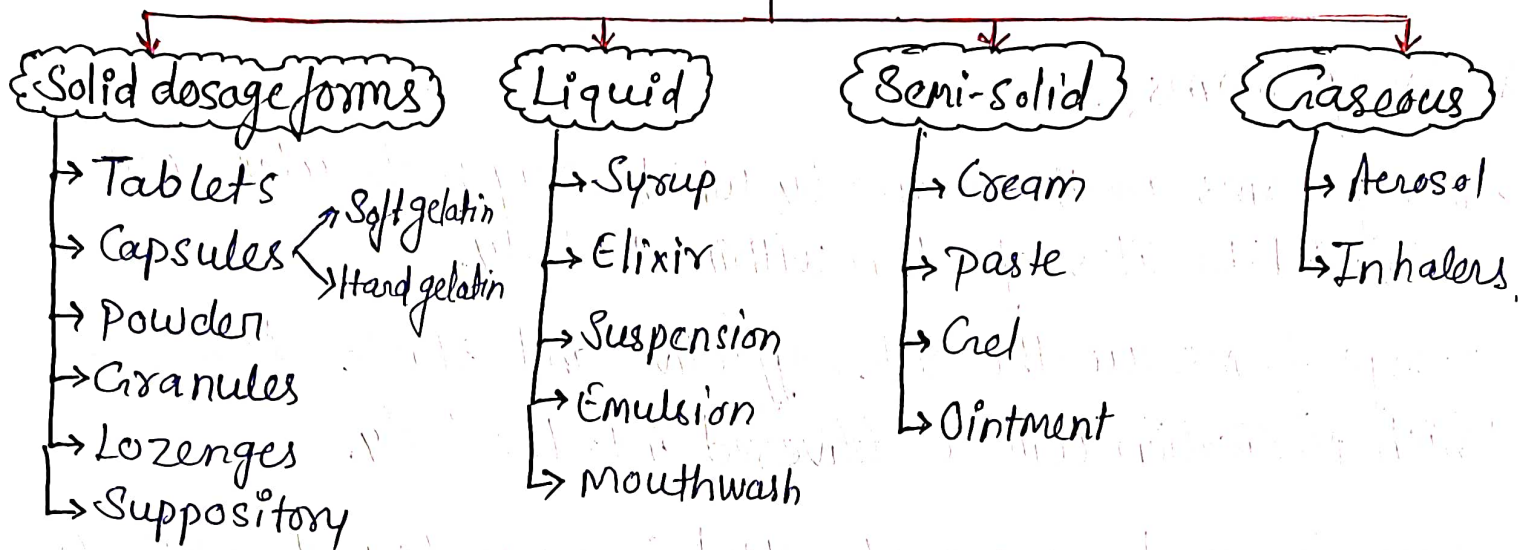 Solid dosage forms
Tablets
Capsules
Soft gelatin
Hard gelatin
Powder
Granules
Lozenges
Suppository
Liquid
Syrup
Elixir
Suspension
Emulsion
Mouthwash
Semi-solid
Cream
Paste
Gel
Ointment
Gaseous
Aerosol
Inhalers.